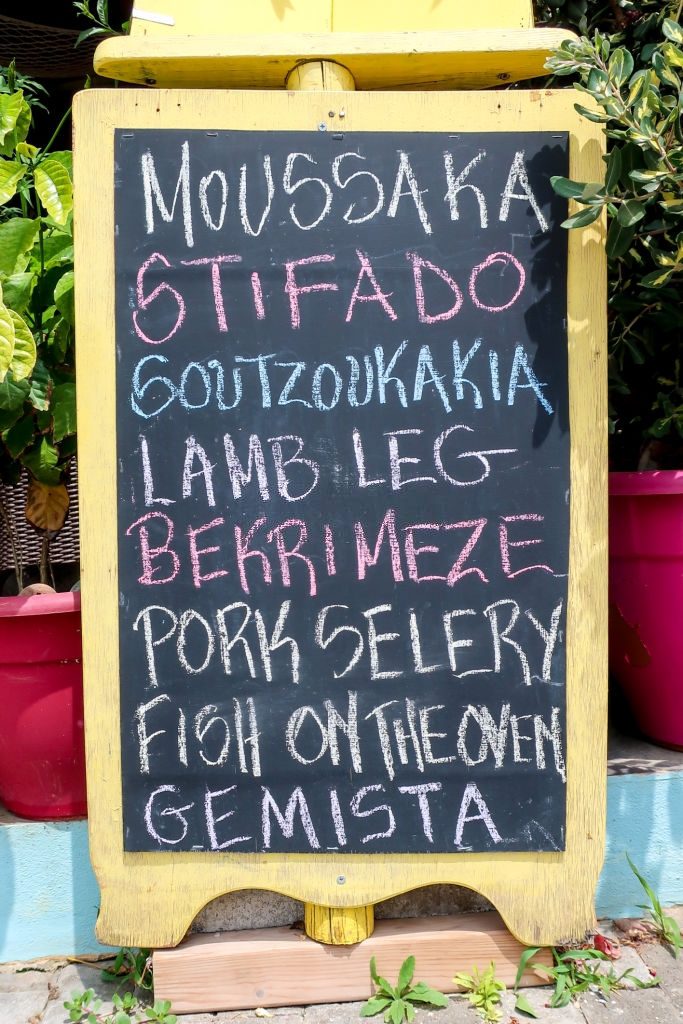 MOUSSAKA
STIFADO
SOUTZOUKAKIA
LAMB LEG
BEKRI MEZE
PORK SELERY
FISH ON THE OVEN
GEMISTA